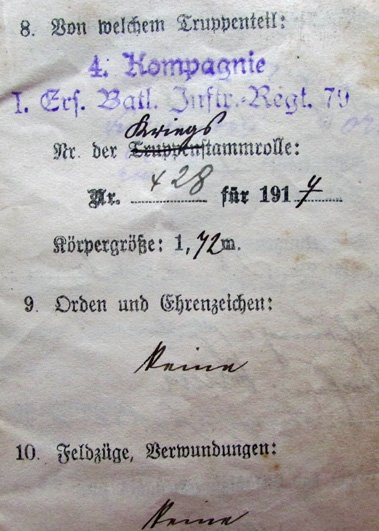 8. Von welchem Truppenteil:
4. Kompagnie
I. Ers. Batl. Inftr.-Regt. 79
Kriegs
Nr. der Truppenstammrolle:
Nr. 428 für 1917
Körpergröße: 1,72m.
9. Orden und Ehrenzeichen:
Keine
10. Feldzüge, Verwundungen:
Keine